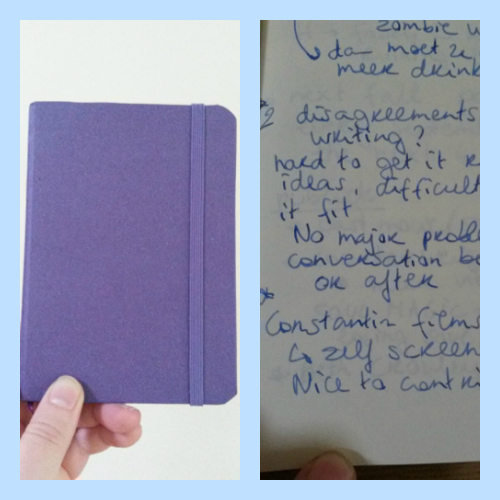 zombie w
da- moet ze
meer drink
2 disagreements
writing?
hard to get it r
ideas, difficult
it fit
No major proble
conversation be
or after
Constantin films
zelf screen
Nice to contri